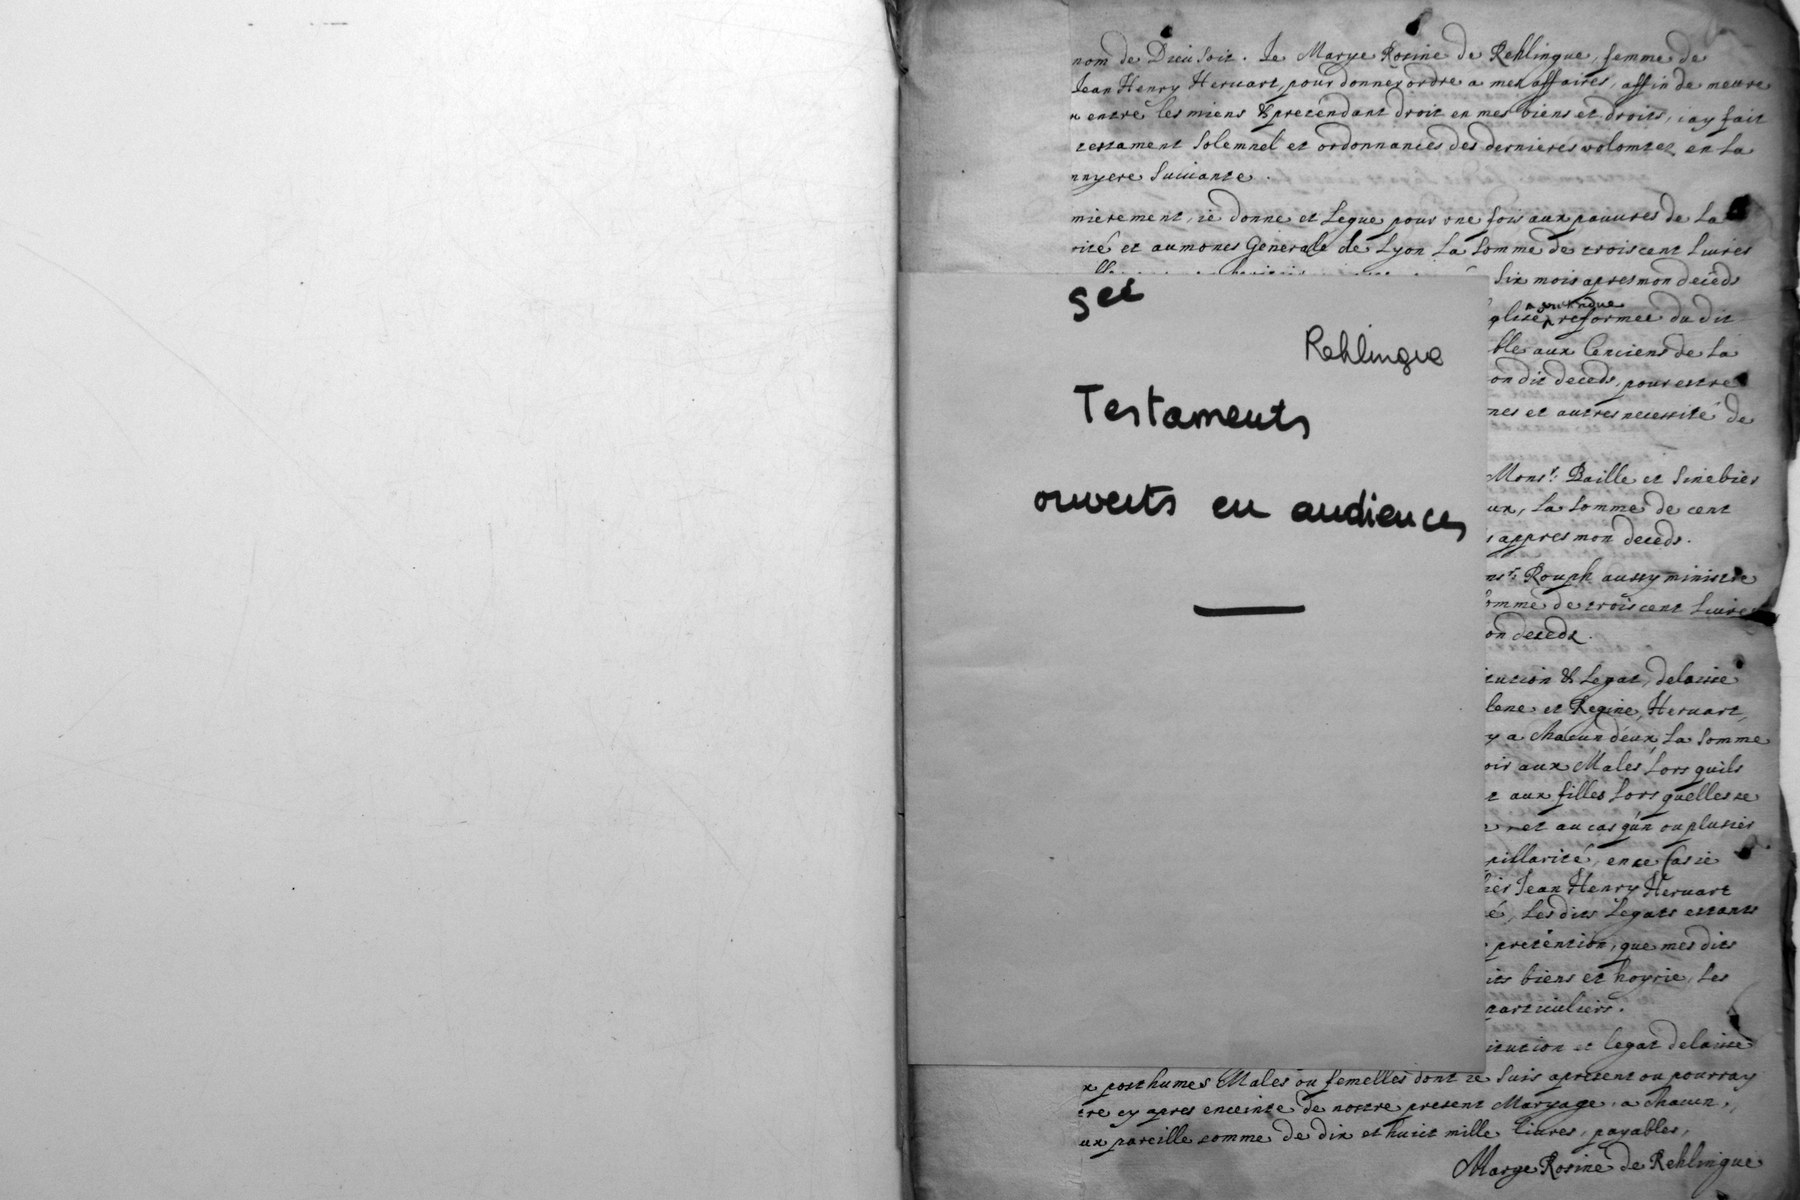 nom de Dieu soit. Je Marye Rosine de Rehlingue, femme de
Jean Henry Heruart, pour donner ordre a mes affaires, affin de
entre les miens & pretendant droit en mes biens et droits, i'ay fait
testament solemnel et ordonnances des dernieres volomtez en la
suiuante.
mierement, ie donne et legue pour vne fois aux pauures de La
rité et aumones Generale de Lyon La somme de trois cent Liures
Six mois apres mon deceds
glise reformee du dit
ble aux Anciens de La
on dit deceds, pour estre
nes et autres necessité de
Monsr. Baille et Sinebier
ux, La somme de cent
appres mon deceds.
nsr. Rouph aussy ministre
omme de trois cent Liures
on deceds.
tution & Legat, delaisse
lene et Regine, Heruart,
y a chacun d'eux La somme
oir aux Males Lors quils
t aux filles Lors quelles se
et au cas qu'un ou plusies
pillarité, en ce cas ie
Jean Henry Heruart
é, Les dits Legats estants
pretention, que mes dits
its biens et hoyrie, Les
particuliers.
itution et legat delaisse
x posthumes Males ou femelles dont ie suis apresent ou pourray
tre cy apres enceinte de nostre present Maryage, a chacun,
ux pareille somme de dix et huit mille liures, payables,
Marye Rosine de Rehlingue
Rehlingue
Testaments
ouverts en audiences